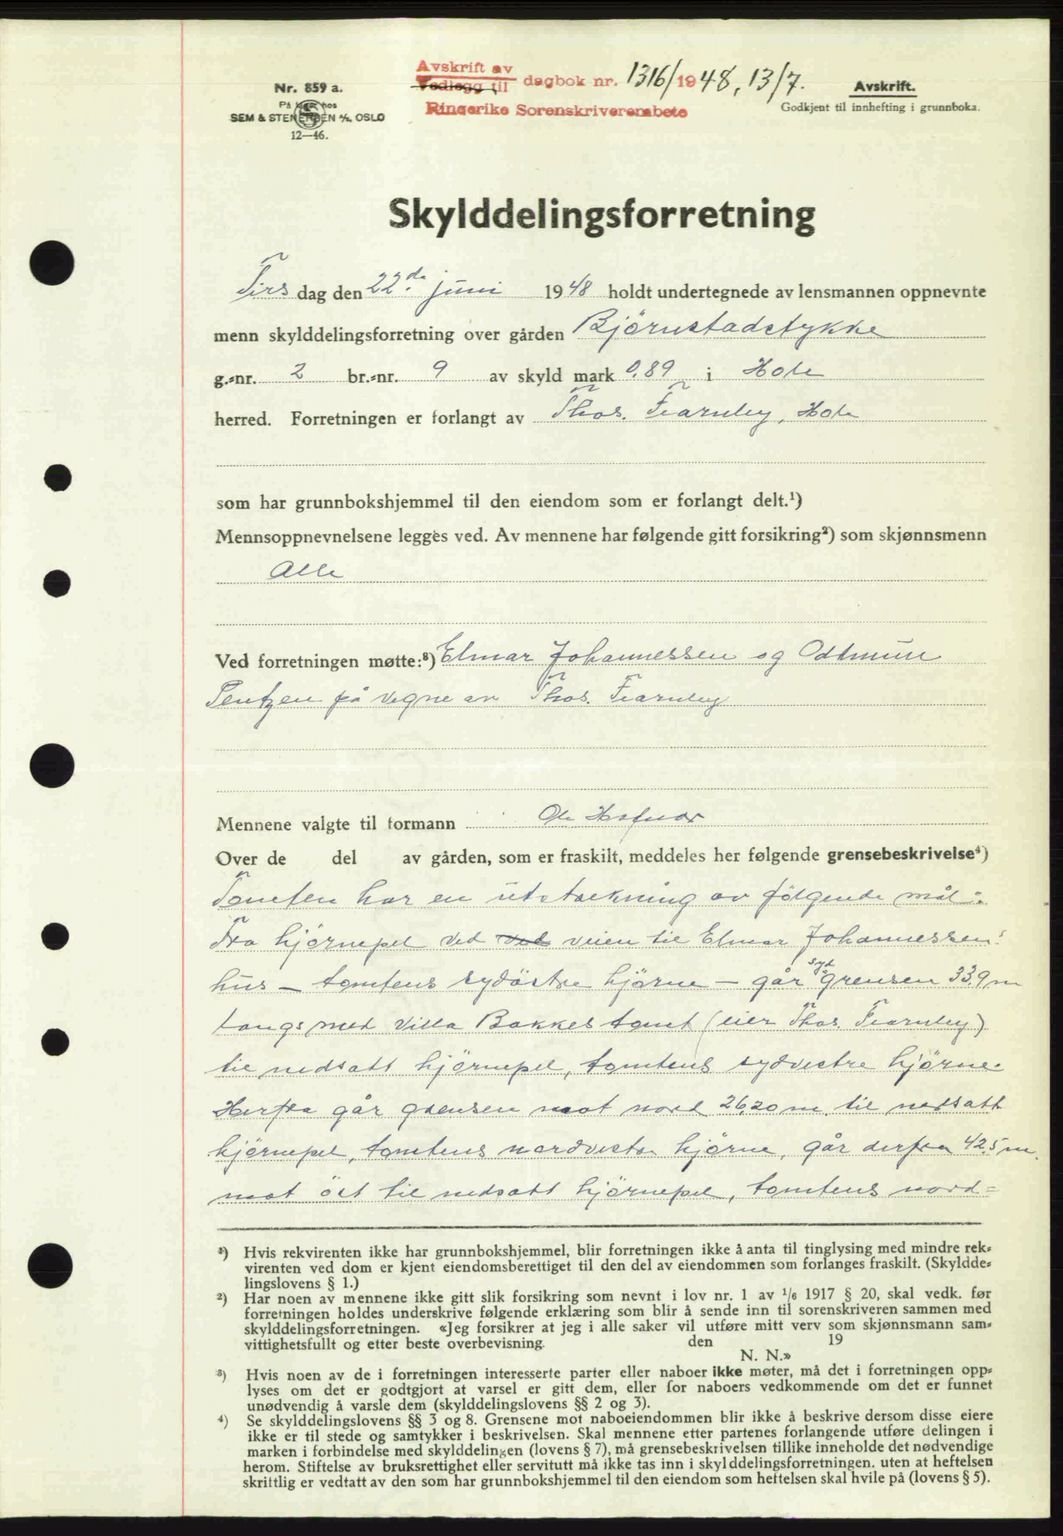 Avskrift av
Vedlegg til dagbok nr. 1316/1948, 13/7.
Ringerike Sorenskriverembete
Nr. 859 a.
På lager hos
SEM & STENERSEN A/S, OSLO
12—46.
Avskrift.
Godkjent til innhefting i grunnboka.
Skylddelingsforretning
Tirsdag den 22de juni 1948 holdt undertegnede av lensmannen oppnevnte
menn skylddelingsforretning over gården Bjørnstadstykke
g.-nr. 2 br.-nr. 9 av skyld mark 0.89 i Hole
herred. Forretningen er forlangt av Thos. Fearnley, Hole
som har grunnbokshjemmel til den eiendom som er forlangt delt.¹)
Mennsoppnevnelsene legges ved. Av mennene har følgende gitt forsikring²) som skjønnsmenn
Alle
Ved forretningen møtte:³) Elmar Johannessen og Odtmun
Pentzen på vegne av Thos. Fearnley
Mennene valgte til formann Ole
Over de del av gården, som er fraskilt, meddeles her følgende grensebeskrivelse⁴)
Tomten har en utstrekning av følgende mål:
Fra hjørnepel ved ved veien til Elmar Johannessens
hus — tomtens sydøstre hjørne — går sydgrensen 33,9 m
langs med Villa Bakkes tomt (eier Thos. Fearnley)
til nedsatt hjørnepel, tomtens sydvestre hjørne.
Herfra går grensen mot nord 26,20 m til nedsatt
hjørnepel, tomtens nordvestre hjørne, går derfra 42,5 m.
mot øst til nedsatt hjørnepel, tomtens nord=
¹) Hvis rekvirenten ikke har grunnbokshjemmel, blir forretningen ikke å anta til tinglysing med mindre rek-
virenten ved dom er kjent eiendomsberettiget til den del av eiendommen som forlanges fraskilt. (Skyldde-
lingslovens § 1.)
²) Har noen av mennene ikke gitt slik forsikring som nevnt i lov nr. 1 av 1/6 1917 § 20, skal vedk. før
forretningen holdes underskrive følgende erklæring som blir å sende inn til sorenskriveren sammen med
skylddelingsforretningen. «Jeg forsikrer at jeg i alle saker vil utføre mitt verv som skjønnsmann sam-
vittighetsfullt og etter beste overbevisning. den 19
N. N.»
³) Hvis noen av de i forretningen interesserte parter eller naboer ikke møter, må det i forretningen opp-
lyses om det er godtgjort at varsel er gitt dem, eller for naboers vedkommende om det er funnet
unødvendig å varsle dem (skylddelingslovens §§ 2 og 3).
⁴) Se skylddelingslovens §§ 3 og 8. Grensene mot naboeiendommen blir ikke å beskrive dersom disse eiere
ikke er til stede og samtykker i beskrivelsen. Skal mennene etter partenes forlangende utføre delingen i
marken i forbindelse med skylddelingen (lovens § 7), må grensebeskrivelsen tillike inneholde det nødvendige
herom. Stiftelse av bruksrettighet eller servitutt må ikke tas inn i skylddelingsforretningen. uten at heftelsen
skriftlig er vedtatt av den som har grunnbokshjemmel til den eiendom som heftelsen skal hvile på (lovens § 5).